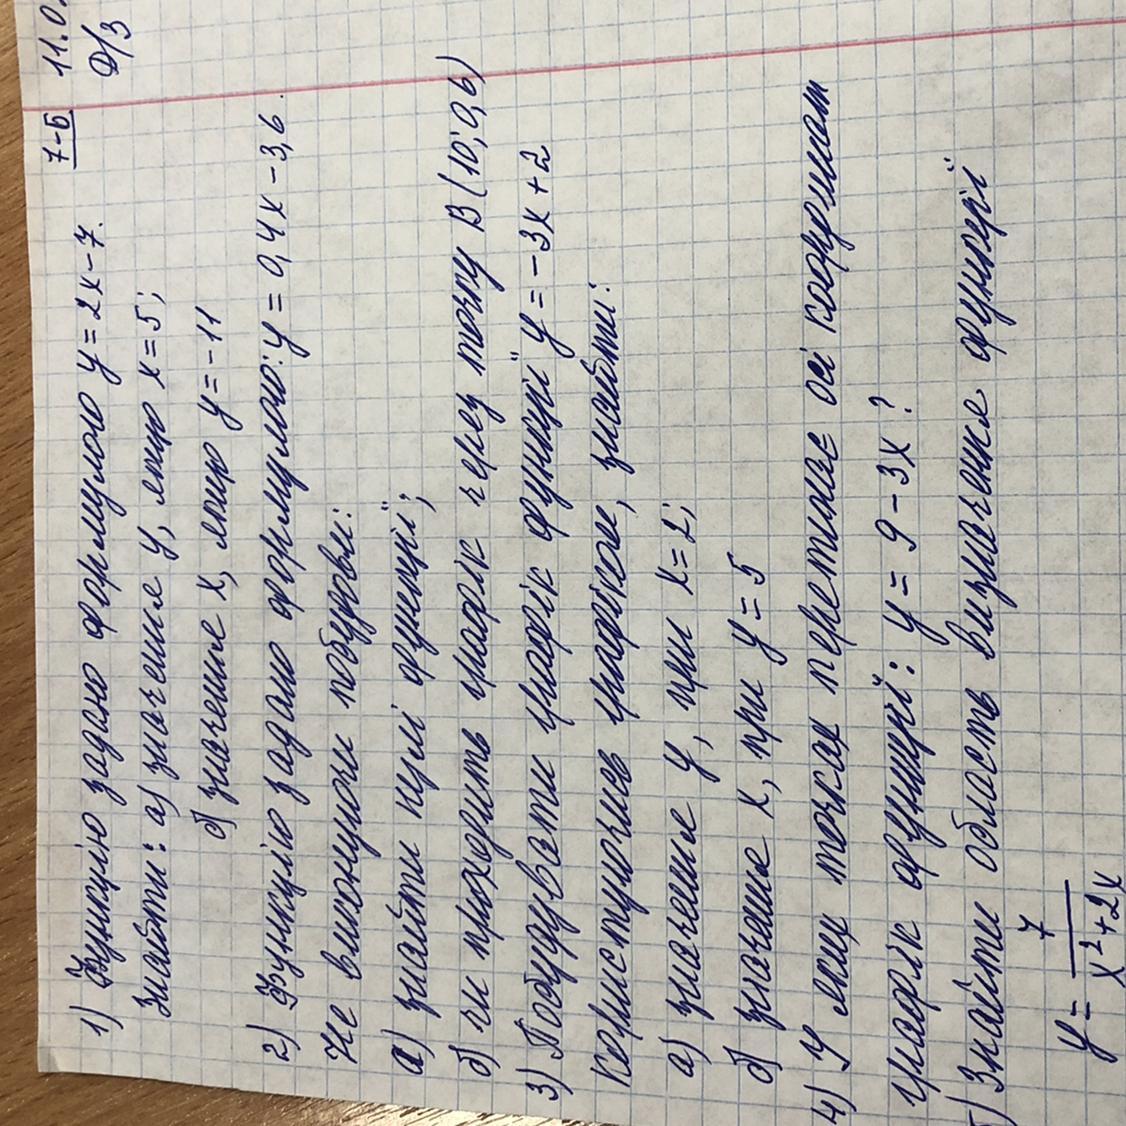 7-Б 11.0
Д/З
1) Функцію задано формулою y = 2x - 7.
Знайти: а) значення y, якщо x = 5;
б) значення x, якщо y = -11
2) Функцію задано формулою: y = 0,4x - 3,6.
Не виконуючи побудови:
а) знайти нулі функції;
б) чи проходить графік через точку В (10; 0,6)
3) Побудувати графік функції y = -3x + 2
Користуючись графіком, знайти:
а) значення y, при x = 2;
б) значення x, при y = 5
4) У яких точках перетинає осі координат
графік функції: y = 9 - 3x?
5) Знайти область визначення функції
y = 7 / (x² + 2x)